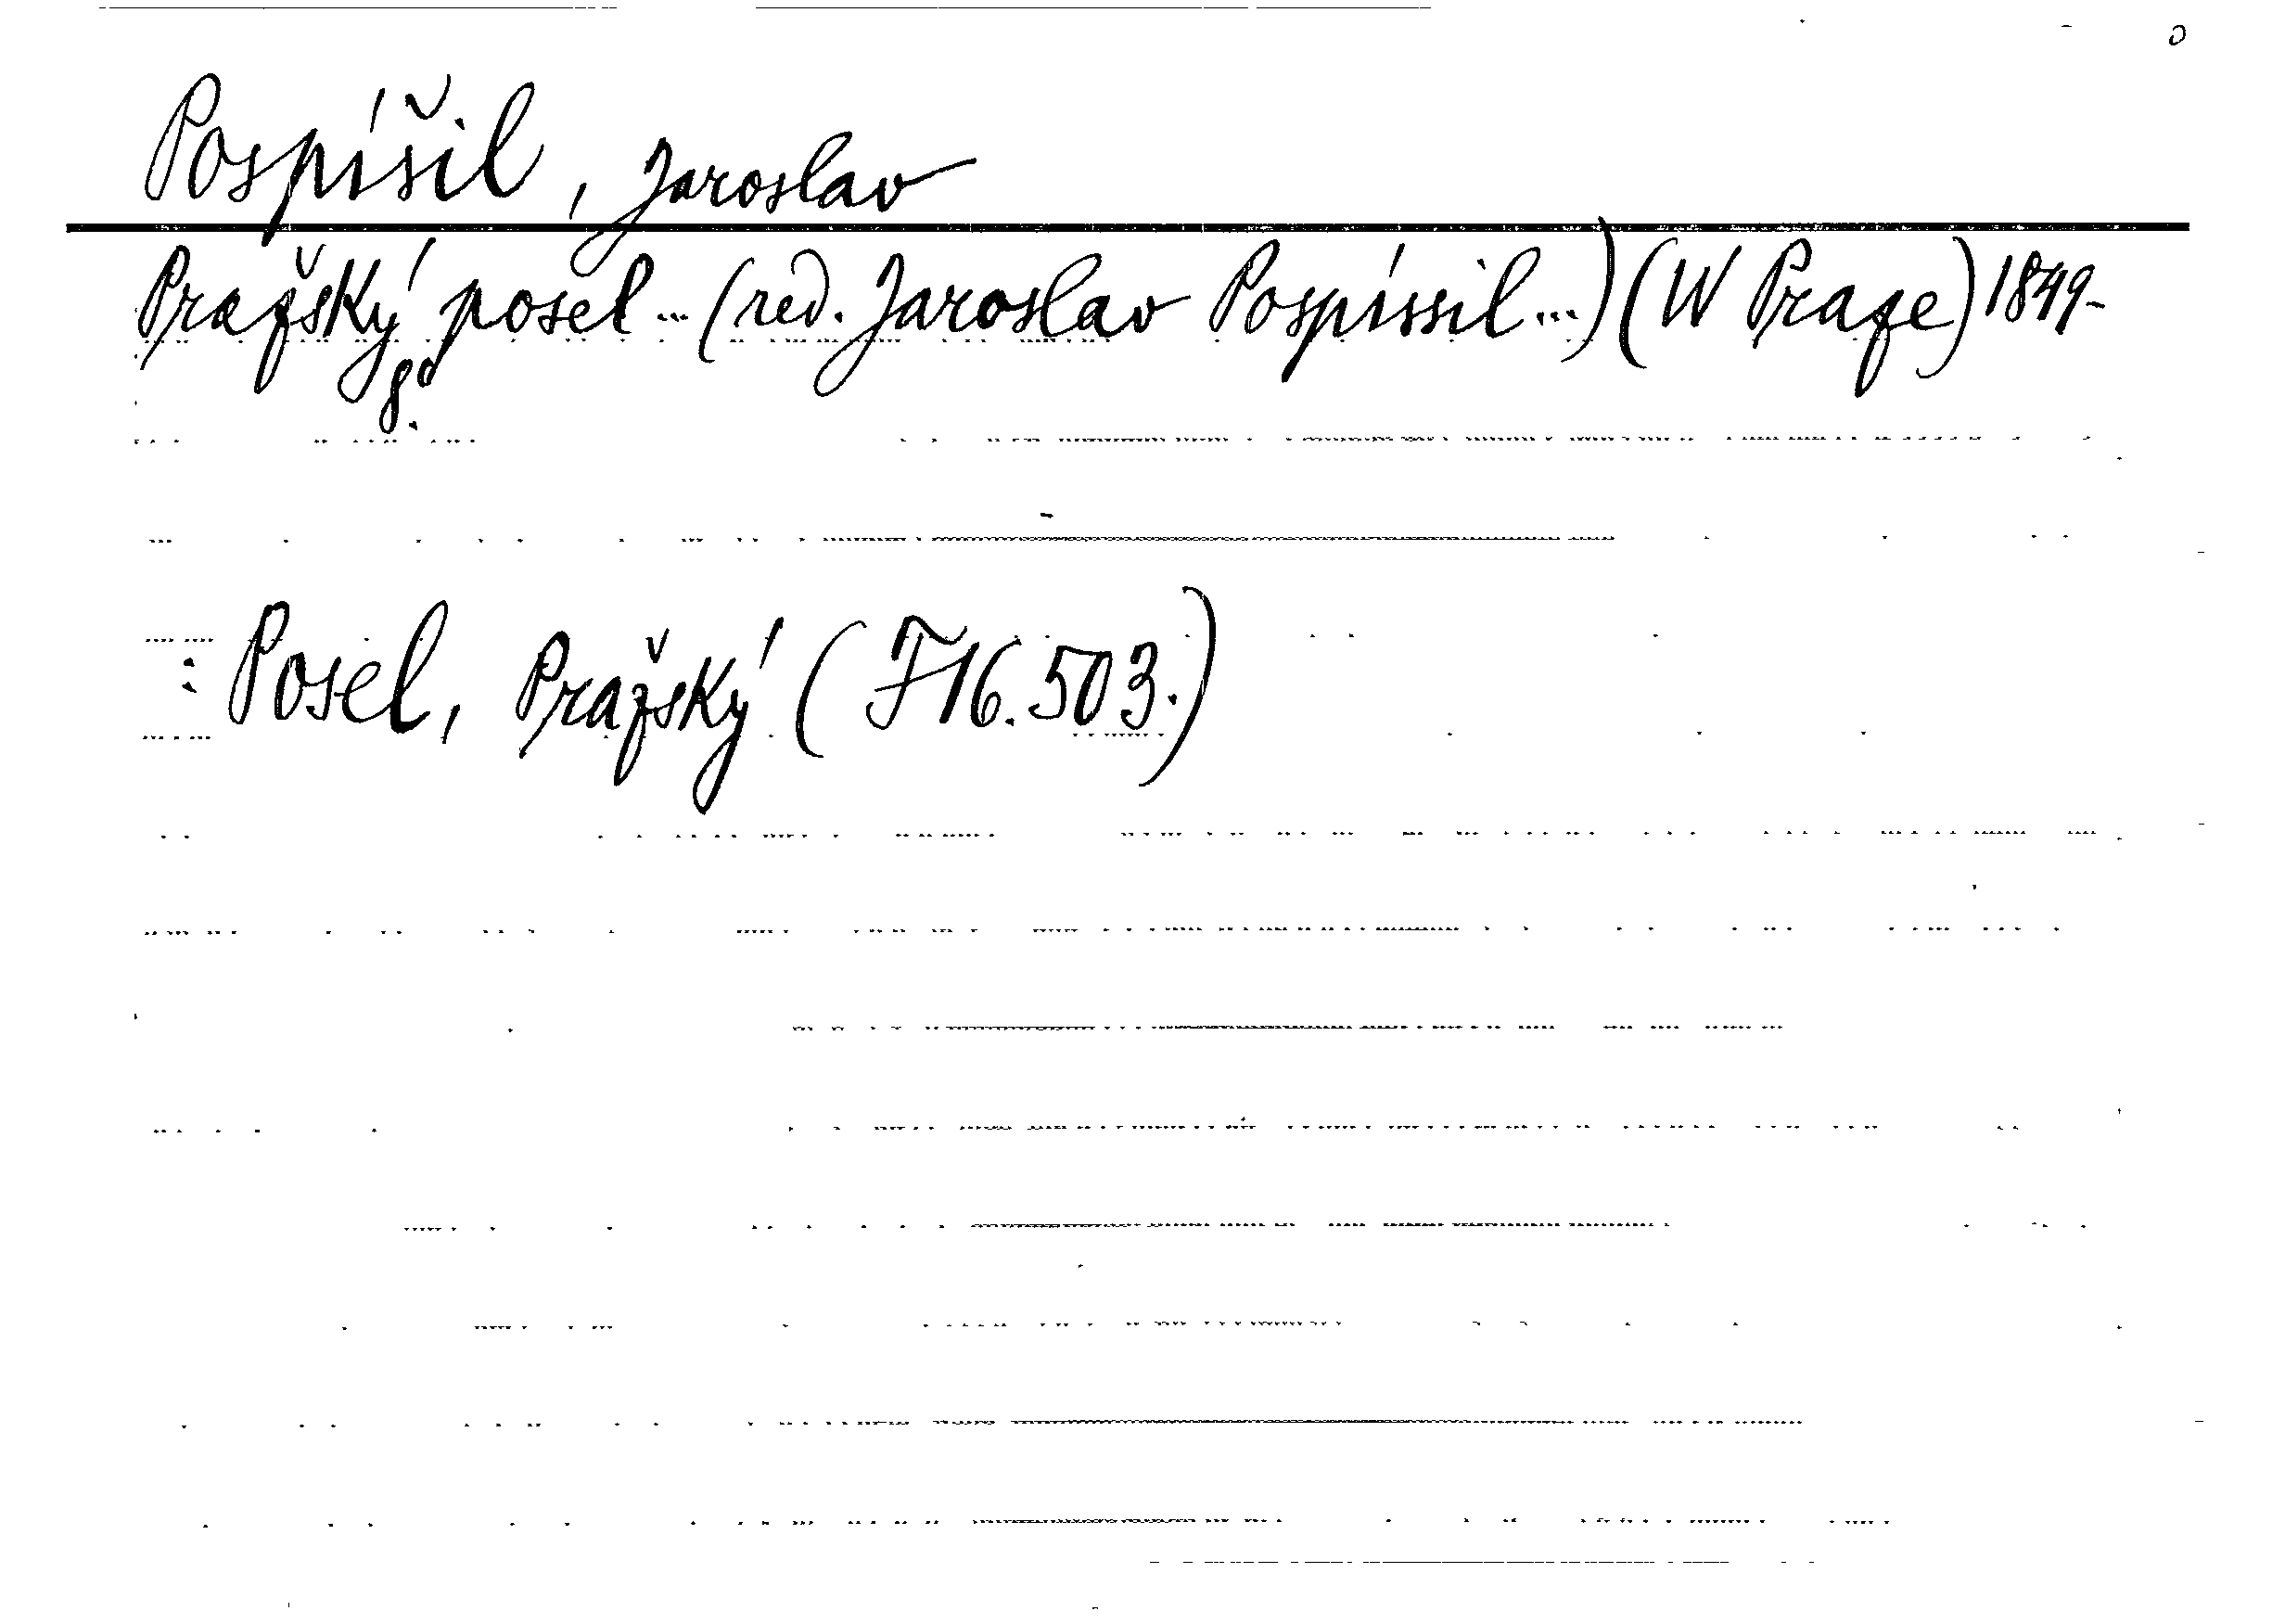 Pospíšil, Jaroslav
Pražský posel... (red. Jaroslav Pospíssil...) (W Praze) 1849-
8°.
: Posel, Pražský (F16.503.)